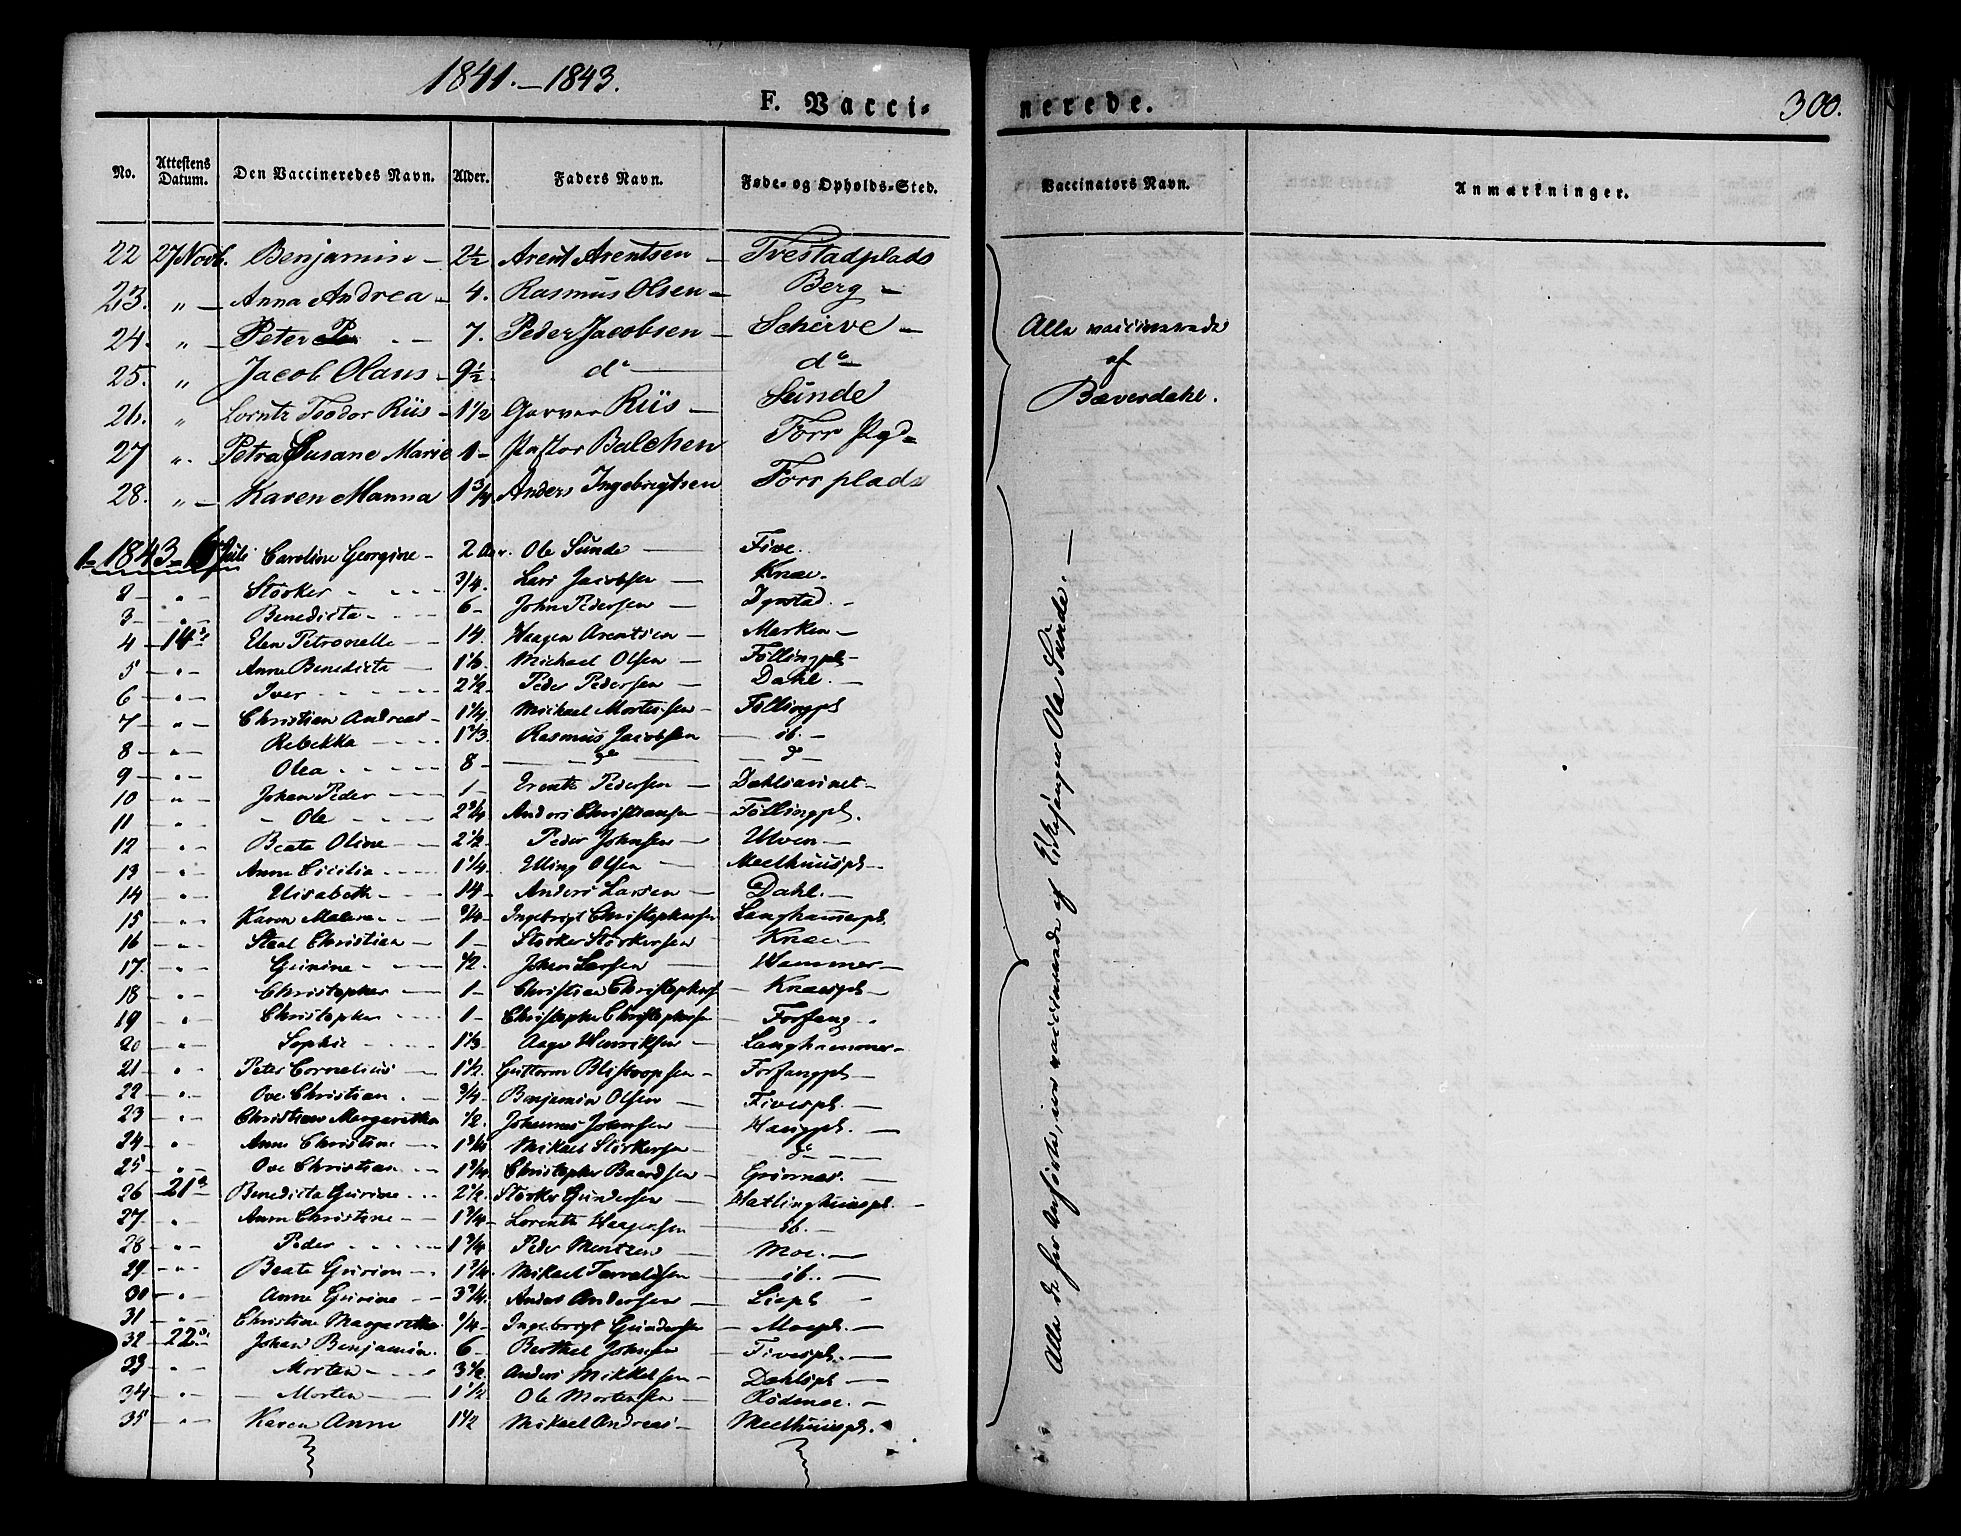 1841.–1843.
F. Vacci-
nerede.
300.
No.
Attestens Datum.
Den Vaccineredes Navn.
Alder.
Faders Navn.
Føde- og Opholds-Sted.
Vaccinators Navn.
Anmærkninger.
22 27 Novb. Benjamin – 2½ Arent Arentsen – Tvestadplads
23. „ – Anna Andrea – 4. Rasmus Olsen – Berg –
24. „ – Peter – 7. Peder Jacobsen – Scherve –
25. „ Jacob Olaus – 9½ do do
26. „ Lorntz Teodor Riis – 1½ Garver Riis – Sunde
27 „ Petra Susane Marie 1 – Pastor Balchen Forr
28. „ – Karen Manna 1¾ Anders Ingebrigtsen Forrplads
Alle vaccinerede
af
Bæverdahl.
1– 1843 – 6 Juli Caroline Georgine – 2 Ole Sunde – Five.
2 – „ – Störker – ¾. Lars Jacobsen – Knae.
3 – „ – Benedicta – 6 – John Pedersen – Dyrstad. –
4 – 14 Elen Petronelle – 14. Haagen Arentsen – Marken –
5 – „ – Anne Benedicta – Michael Olsen – Föllingpl –
6 – „ – Iver – 2½ – Peder Pedersen – Dahl. –
7 – „ – Christian Andreas – 1¼ Michael Mortensen – Föllingpl
8 – „ – Rebekka – Rasmus Jacobsen – ib. –
9 – „ – Olea – 8 – do – do
10 – „ – Johan Peder – 1 – Pedersen – Dahlsavinet –
11 – „ – Ole – 2¾ Anders Christiansen – Föllingpl.
12 – „ – Beate Oline – 2½ Peder Johnsen – Ulven –
13 – „ – Anne Cicilia – 1¼ Elling Olsen – Meelhuuspl –
14 – „ – Elisabeth – 14 – Anders Larsen – Dahl. –
15 – „ – Karen Malene – ¾ – Ingebrigt Christophersen Langhammerpl
16 – „ – Christian – 1 – Störker Störkersen – Knae –
17. – „ – Gurine – ½. Johan Larsen – Hammer –
18 – „ – Christopher – 1 – Christian Christophers. – Knaespl –
19 – „ – Christopher – 1 – Christopher Christophersen – Forfang –
20 – „ – Sophie – 1⅓ Aage Henriksen – Langhammer –
21 – „ – Peter Cornelius – 1½. Guttorm – Forfangpl –
22 – „ – Ove Christian – ¾ – Benjamin Olsen – Fivespl. –
23 – „ – Christian Margaretha ½. Johannes Johnsen – Haugpl. –
24 – „ – Anne Christine – 1¾ Mikael Störkersen – do –
25 – „ – Ove Christian – 1¾. Christopher Baardsen –
26 – 21 – Benedicta Gurine – 2½. Störker Gundersen – Hatlinghuuspl. –
27 – „ – Anne Christine – 1¾ – Lorents Haagensen – ib. –
28 – „ – Peder – 1¾ Peder Mentzen – Moe. –
29 – „ – Beate Gurine – 1¾. Mikael – ib. –
30 – „ – Anne Gurine – 3¾. Anders Andersen – Liepl –
31 – „ – Christine Margaretha ¾. Ingebrigt Gundersen – Moepl. –
32 – 22 Johan Benjamin. 6 – Berthel Johnsen – Fivespl. –
33 – „ – Morten – 3½ Anders Mikkelsen – Dahlspl –
34 – „ – Morten – 1½ Ole Mortensen – Rödenoe. –
35 – „ – Karen Anne 1½ Mikael Andreas – Meelhuuspl.
Alle de her anførte, ere vaccinerede af Kirkesanger Ole Sunde. –